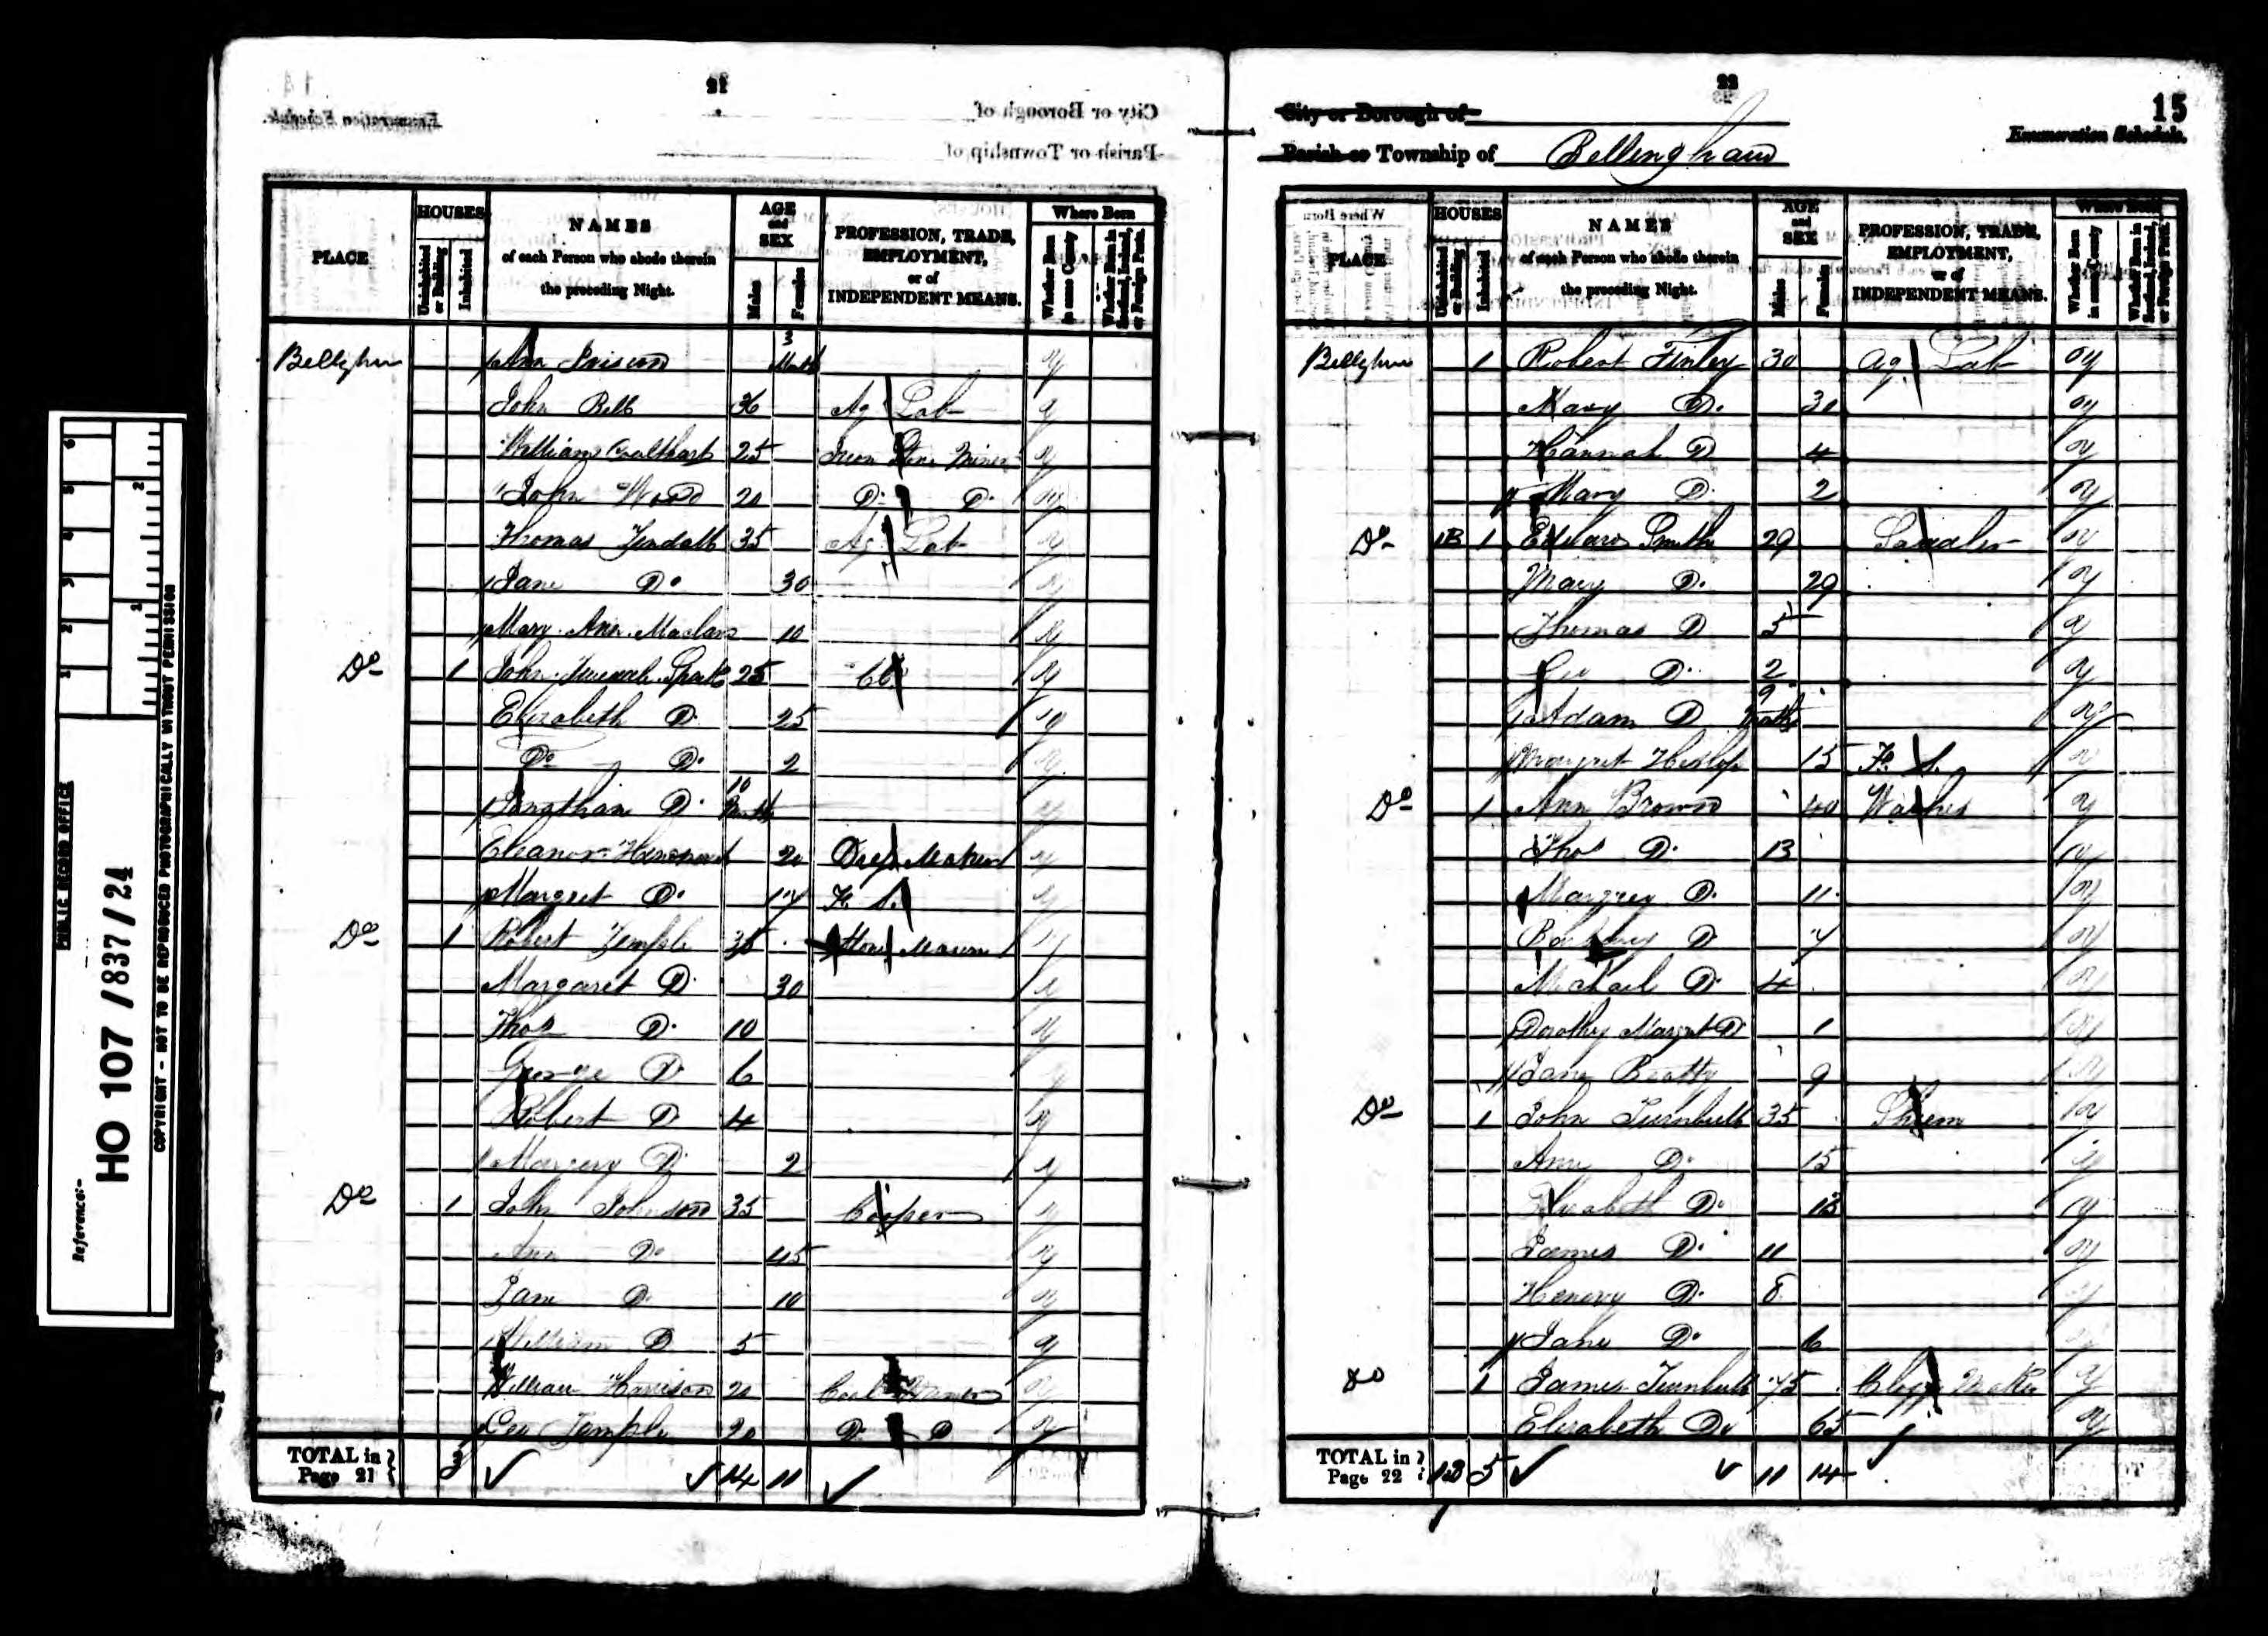 PUBLIC RECORD OFFICE
Reference:-
HO 107/837/24
COPYRIGHT - NOT TO BE REPRODUCED PHOTOGRAPHICALLY WITHOUT PERMISSION
1 2 3 4 5 6
1 2
21
City or Borough of
Parish or Township of
Enumeration Schedule.
PLACE
HOUSES
Uninhabited or Building
Inhabited
NAMES
of each Person who abode therein
the preceding Night.
AGE and SEX
Males
Females
PROFESSION, TRADE,
EMPLOYMENT,
or of
INDEPENDENT MEANS.
Where Born
Whether Born in same County
Whether Born in Scotland, Ireland, or Foreign Parts.
Ann 3 Mnth y
John Bell 36 Ag Lab y
William Coulthart 25 Iron Stone Miner y
John Wood 20 Do Do y
Thomas Tindall 35 Ag Lab y
Jane Do 30 y
Mary Ann 10 y
Do 1 John 25 y
Elizabeth D 25 y
Do Do 2 y
Jonathan D 10 Mnth y
Eleanor 20 Dress Maker y
Margret D 14 F. S. y
Do 1 Robert Temple 35 Stone Mason y
Margaret D 30 y
Thos D 10 y
George D 6 y
Robert D 4 y
Margery D 2 y
Do 1 John Johnson 35 Cooper y
Ann Do 45 y
Jane D 10 y
William D 5 y
William Harrison 20 Coal y
Geo Temple 20 D D y
TOTAL in Page 21 3 14 11
22
15
City or Borough of
Enumeration Schedule.
Parish or Township of Bellingham
PLACE
HOUSES
Uninhabited or Building
Inhabited
NAMES
of each Person who abode therein
the preceding Night.
AGE and SEX
Males
Females
PROFESSION, TRADE,
EMPLOYMENT,
or of
INDEPENDENT MEANS.
Where Born
Whether Born in same County
Whether Born in Scotland, Ireland, or Foreign Parts.
1 Robert Finley 30 Ag. Lab y
Mary D. 30 y
Hannah D 4 y
Mary D. 2 y
Do 1B 1 Edward Smith 29 Saddler y
Mary D. 29 y
Thomas D 5 y
Geo D. 2 y
Adam D 9 Mnths y
Margret Heslop 15 F. S. y
Do 1 Ann Brown 40 Washes y
Thos D. 13 y
Margrey D. 11 y
D 7 y
Michael D. 4 y
Dorothy Margrt D 1 y
Jane Beatty 9 y
Do 1 John Turnbull 35 y
Ann D. 15 y
Elizabeth D. 13 y
James D. 11 y
Henery D. 8 y
Jane D. 6 y
Do 1 James Turnbull 75 Clogg Maker y
Elizabeth Do 65 y
TOTAL in Page 22 1B 5 11 14